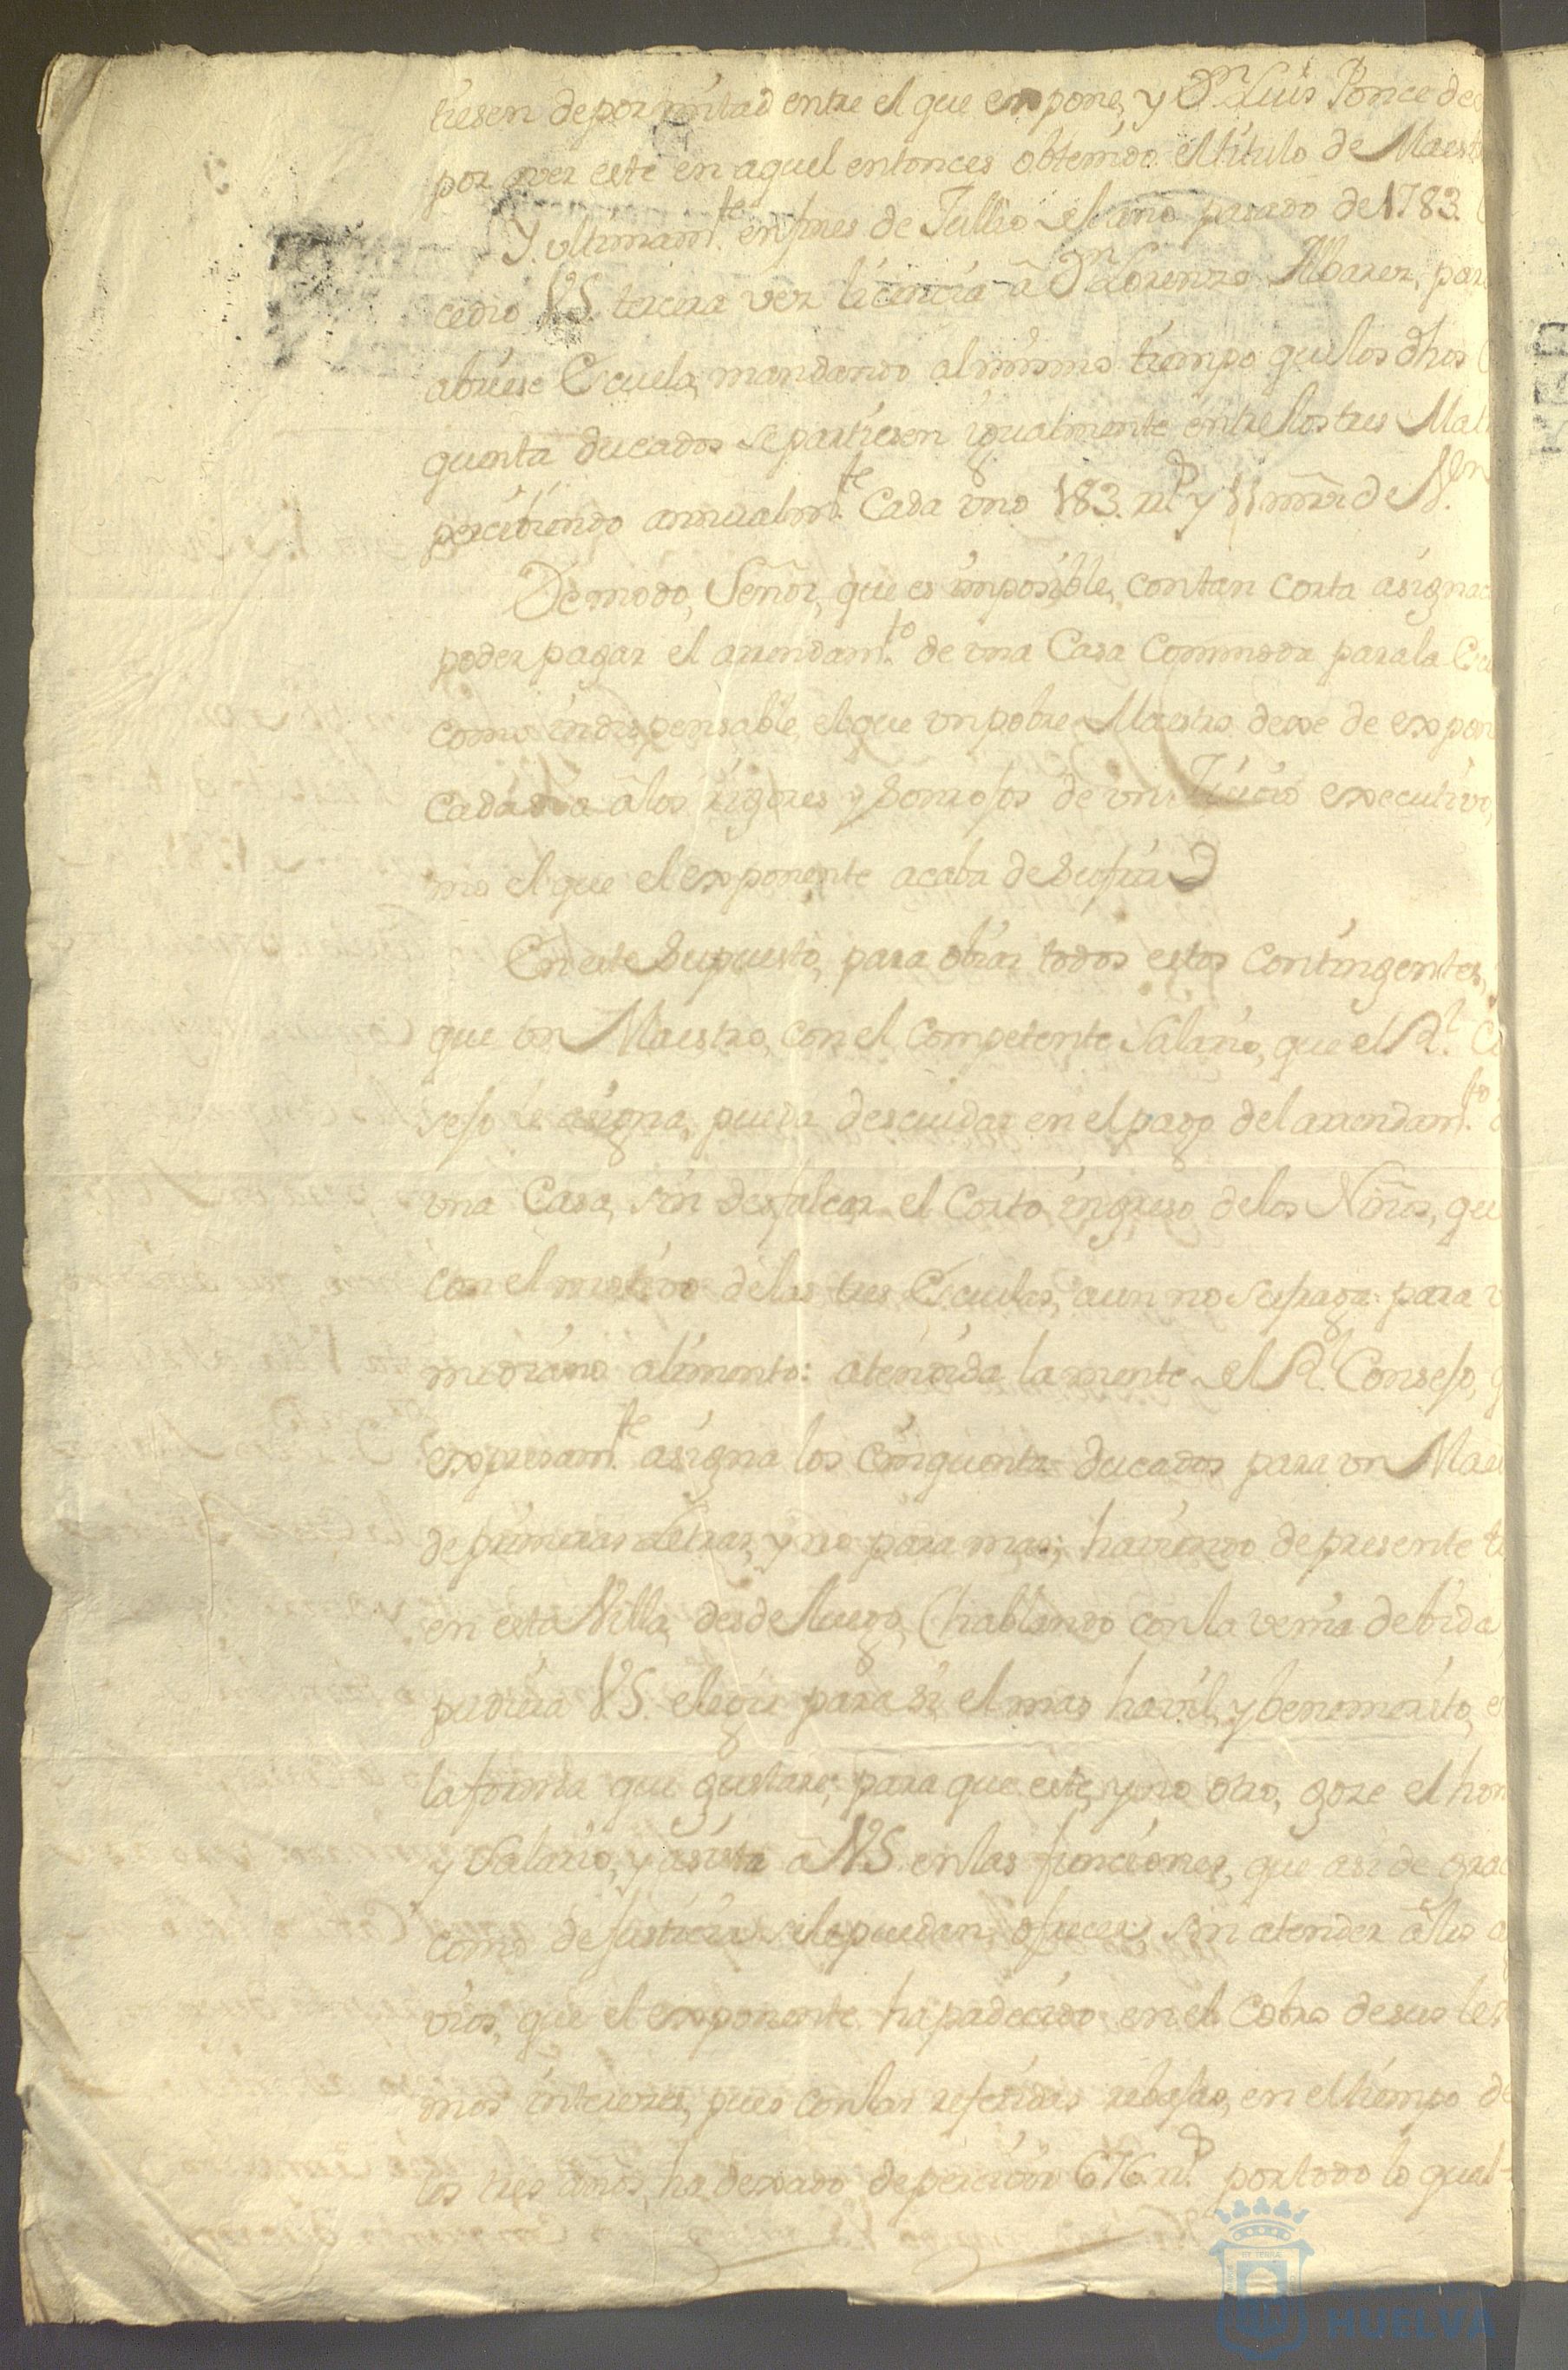 tiesen de por mitad entre el que expone, y Dn. Luis Ponce de
por aver este en aquel entonces obtenido el titulo de Maest
Y ultimamte. en mes de Jullio del año pasado de 1783.
cedio V.S. tercera vez licencia â Dn. Lorenzo Albarez, par
abriese Escuela, mandando al mismo tiempo que los dhos
quenta ducados se partiesen igualmente entre los tres Ma
percibiendo annualmte. cada uno 183. rs. y 11 mrs. de Vn.
De modo, Señor, que es imposible, con tan corta asignac
poder pagar el arrendamto. de una Casa Commoda para la Es
como indispensable, el que un pobre Maestro dexe de expon
cada dia â los rigores y de un Juicio executivo,
mo el que el exponente acaba de sufrir
En este supuesto, para obiar todos estos contingentes,
que un Maestro, con el competente salario, que el Rl. Co
sejo le asigna, pueda descuidar en el pago del arrendamto.
una Casa, sin desfalcar el corto ingreso de los Niños, que
con el motivo de las tres Escuelas, aun no sufraga para
mediano alimento: atendida la mente del Rl. Consejo, q
expresamte. asigna los cinquenta ducados para un Mae
de primeras Letras, y no para mas; haviendo de presente t
en esta Villa, desde luego, (hablando con la venia debida
pudiera V.S. elegir para si el mas havil, y benemerito, e
la forma que gustare; para que este, y no otro, goze el hon
y Salario, y asista â V.S. en las funciones, que asi de gra
como de justicia se le puedan ofrecer; sin atender â los a
vios, que el exponente ha padecido en el cobro de sus le
mos intereses, pues con las referidas rebajas, en el tiempo de
los tres años, ha dexado de percivir 676. rs. por todo lo qual
HUELVA